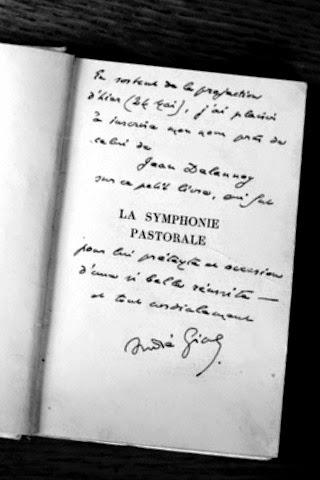 En sortant de la projection
d'hier (24 mai), j'ai plaisir
à inscrire mon nom près de
celui de
Jean Delannoy
sur ce petit livre, qui fut
LA SYMPHONIE
PASTORALE
pour lui prétexte et occasion
d'une si belle réussite —
et tout cordialement
André Gide